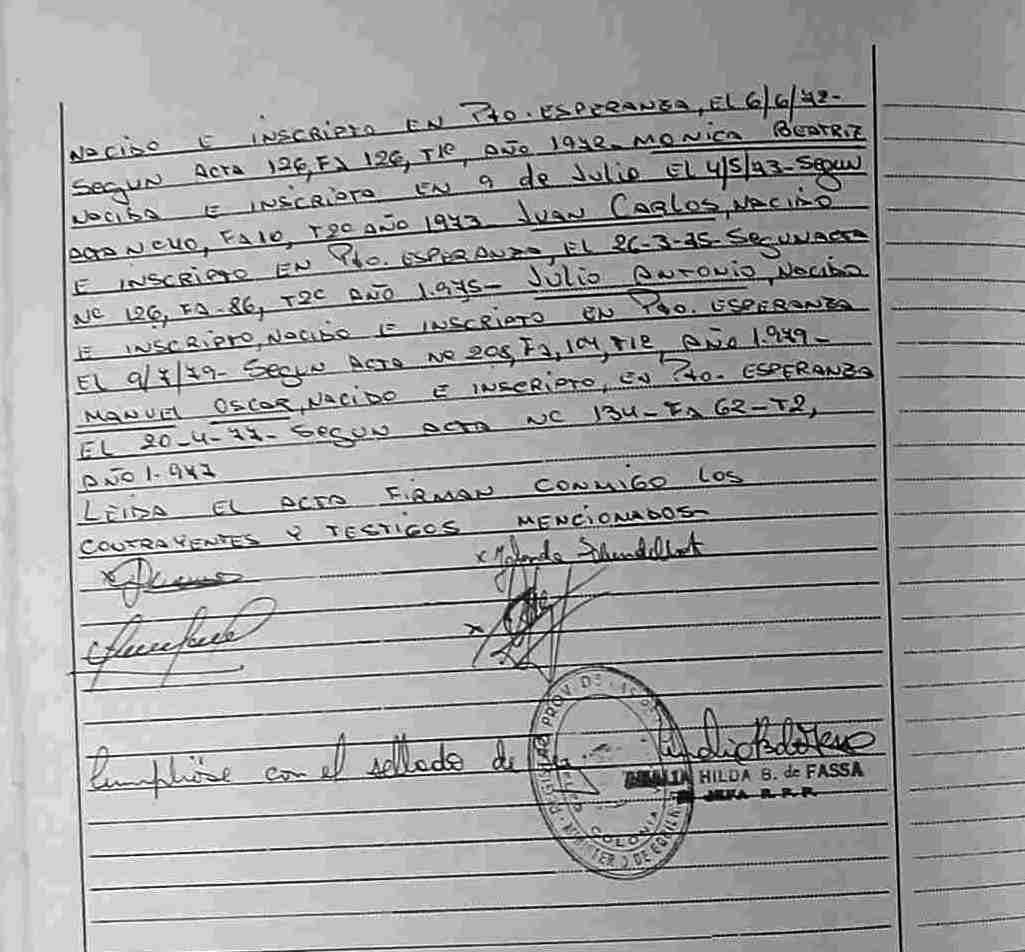 NACIDO E INSCRIPTO EN Pto. ESPERANZA, EL 6/6/72-
SEGUN ACTA 126, Fª 126, Tº1º, AÑO 1972- MONICA BEATRIZ
NACIDA E INSCRIPTA EN 9 de Julio EL 4/5/73- SEGUN
ACTA Nº 40, Fª 10, Tº2º AÑO 1973- JUAN CARLOS, NACIDO
E INSCRIPTO EN Pto. ESPERANZA, EL 26-3-75- SEGUN ACTA
Nº 126, Fª-86, T2º AÑO 1.975- JULIO ANTONIO, NACIDO
E INSCRIPTO, NACIDO E INSCRIPTO EN Pto. ESPERANZA
EL 9/7/79- SEGUN ACTA Nº Fª, AÑO 1.979-
MANUEL OSCAR, NACIDO E INSCRIPTO, EN Pto. ESPERANZA
EL 20-4-77- SEGUN ACTA Nº 134- Fª 62-T2,
AÑO 1.977
LEIDA EL ACTA FIRMAN CONMIGO LOS
CONTRAYENTES Y TESTIGOS MENCIONADOS-
Cumplióse con el sellado de
HILDA B. de FASSA
JEFA R.P.P.
COLONIA